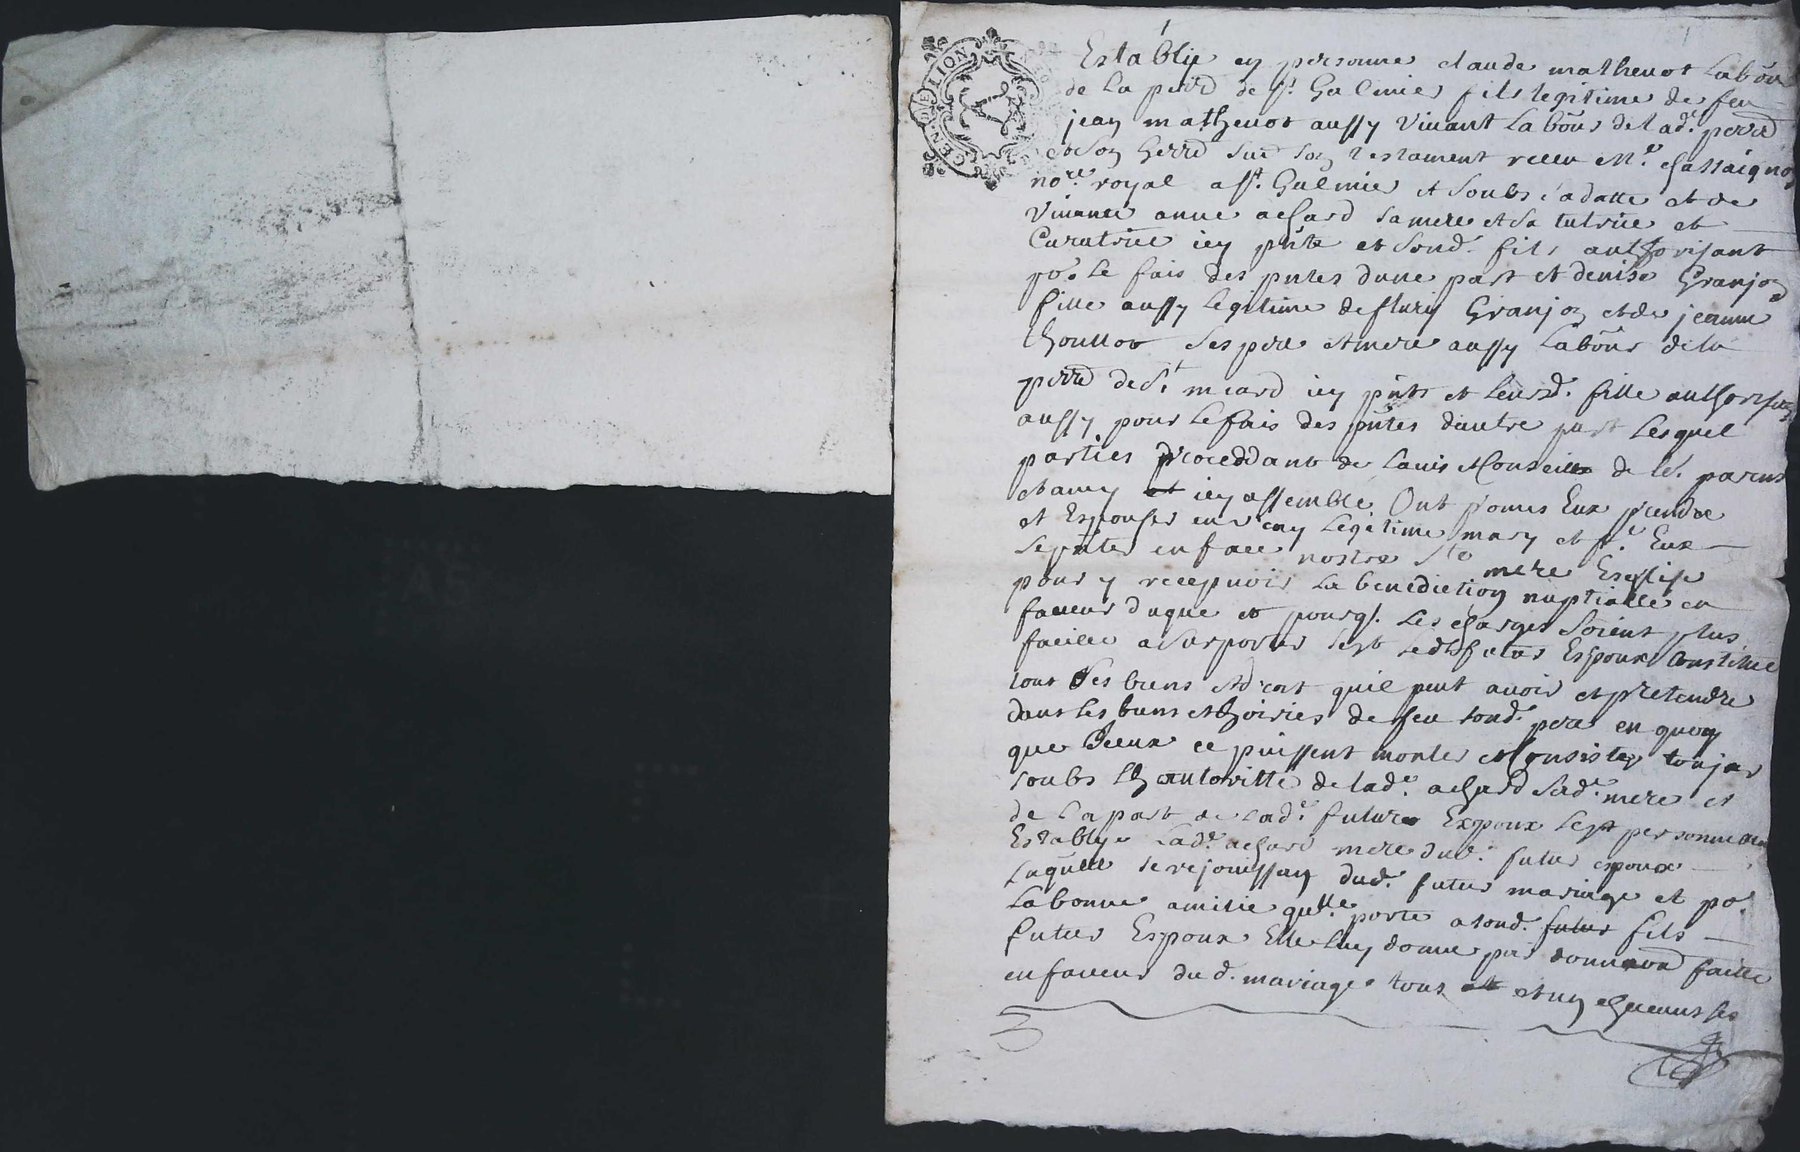 GEN. DVE LION
Establie en personne claude mathevot labour
de la perrd de St. Galmier fils legitime de feu
jean mathevot aussy vivant labour de lad. perrd
et son herre sur son testament receu Me. chassaignon
nore. royal a St. Galmier et soubs sa datte et de
vivante anne achard sa mere et sa tutrice et
Curatrice icy pnte et sond. fils authorisant
por. le fais des pntes dune part et denise Granjon
fille aussy legitime de flury Granjon et de jeanne
thoullot ses pere et mere aussy labours de la
perrd de St meard icy pnts et leursd. fille authorisant
aussy pour le fais des pntes dautre part lesquel
parties proceddant de lavis et Conseil de lrs. parens
et amy icy assemblé Ont promis Eux prendre
et Espouser en vray legitime mary et fe. Eux
se pnter en face nostre Ste mere Esglise
pour y recepvoir la benediction nuptialle en
faveur duque et pourq. les charges soient plus
facille a suporter sest ledt futur Espoux Constitué
tout ses biens et droit quil peut avoir et pretendre
dans les biens et hoiries de feu sond. pere en quoy
que iceux ce puissent monter et Consister toujour
soubs lhautoritté de lad. achard sad. mere et
de la part de lad. future Expoux sest personnellem
Establye lad. achard mere dud. futur espoux
laquelle se rejouissan dud. futur mariage et por.
la bonne amitie quelle porte a sond. futur fils
futur Espoux Elle luy donne par donnaõn faitte
en faveur du d. mariage tous et un chacuns ses